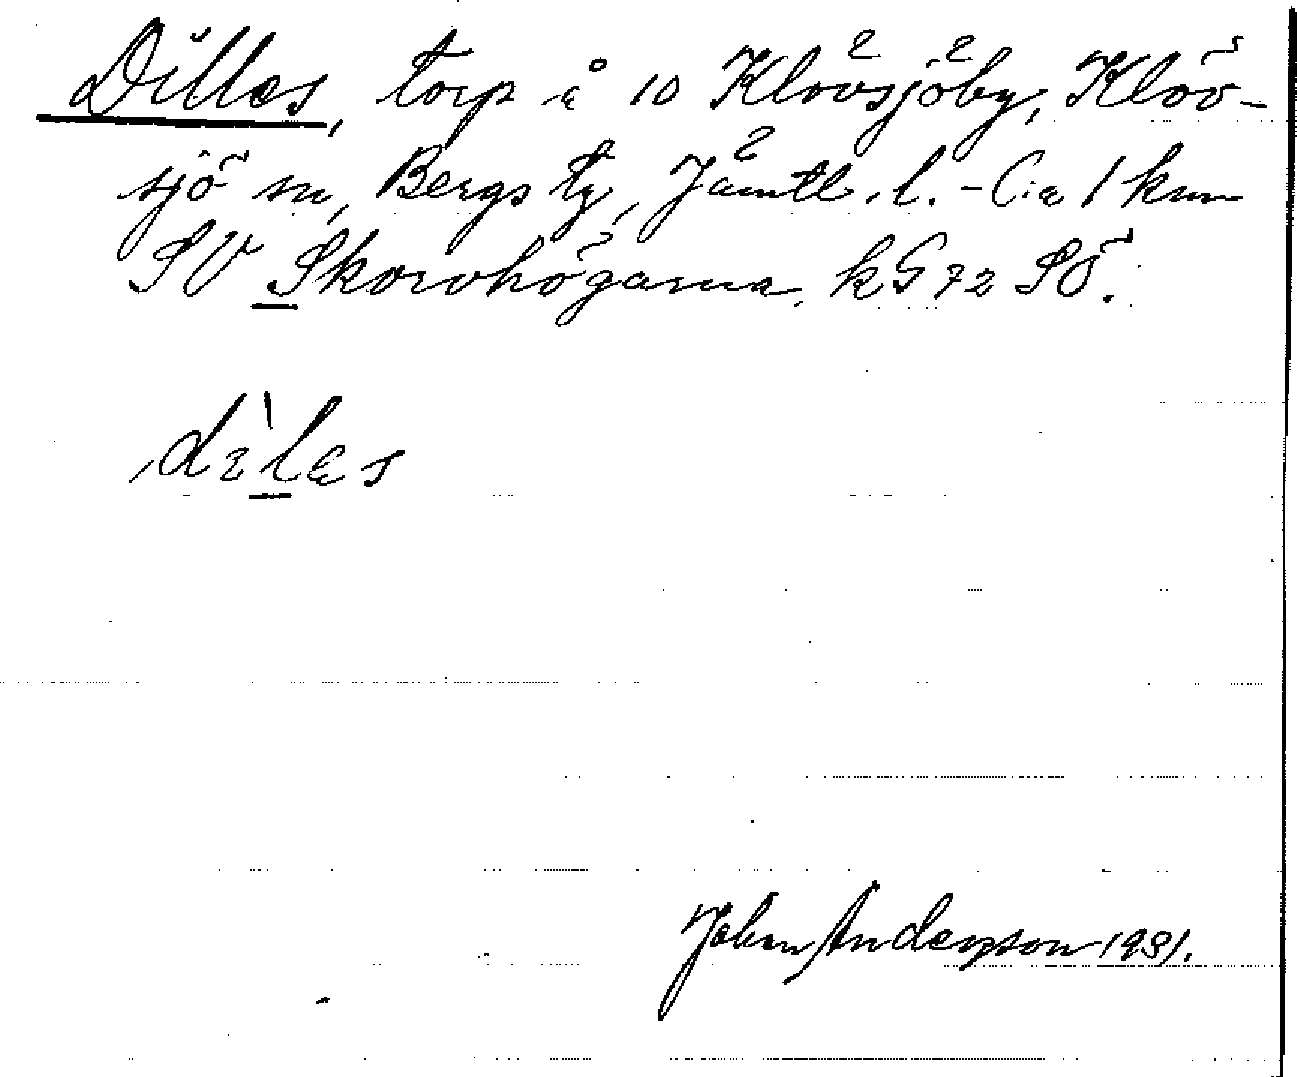 Dilles, torp å 10 Klövsjöby, Klöv-
sjö sn, Bergs tg, Jämtl. l. - C:a 1 km
SV Skorvhögarna, k G 72 SÖ.
John Andersson 1931.